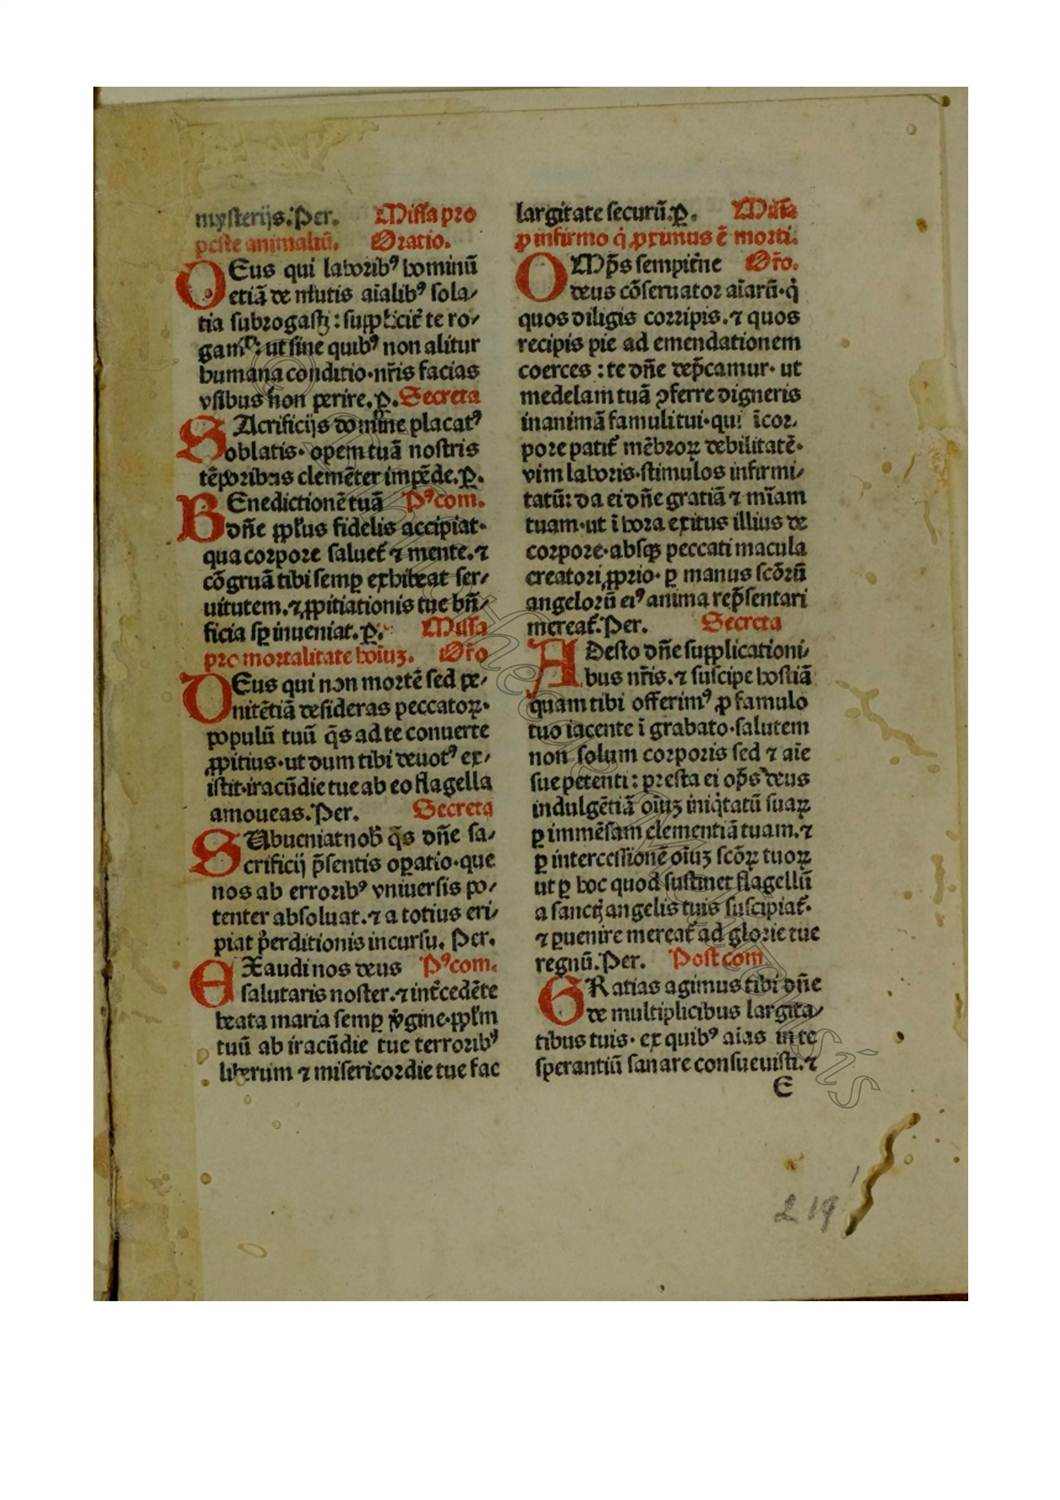 mysterijs.Per. Missa pro
peste animaliū. Oratio.
DEus qui laboribꝰ hominū
etiā de mutis aīalibꝰ sola⸗
tia subrogasti : supplicit̄ te ro⸗
gamꝰ: ut sine quibꝰ non alitur
humana conditio·nr̄is facias
vsibus non perire.ꝑ. Secreta
SAcrificijs domine placatꝰ
oblatis· opem tuā nostris
tēporibus clemēter impēde.ꝑ.
BEnedictionē tuā Pꝰcom.
dn̄e ppl̄us fidelis accipiat·
qua corpore saluet̄ ⁊ mente.⁊
cōgruā tibi semꝑ exhibeat ser⸗
uitutem.⁊ ꝓpitiationis tue bn̄⸗
ficia sꝑ inueniat.ꝑ. Missa
pro mortalitate hoīuꝫ. Or̄o
DEus qui non mortē sed pe⸗
nitētiā desideras peccatoꝝ·
populū tuū q̄s ad te conuerte
ꝓpitius·ut dum tibi deuotꝰ ex⸗
istit·iracūdie tue ab eo flagella
amoueas.Per. Secreta
SUbueniat nob̄ q̄s dn̄e sa⸗
crificij p̄sentis oꝑatio·que
nos ab erroribꝰ vniuersis po⸗
tenter absoluat.⁊ a totius eri⸗
piat ꝑditionis incursu. Per.
EXaudi nos deus Pꝰcom.
salutaris noster.⁊ int̄cedēte
beata maria semꝑ v̄gine·ppl̄m
tuū ab iracūdie tue terroribꝰ
liberum ⁊ misericordie tue fac
largitate securū.ꝑ. Missa
ꝓ infirmo q̇ ꝓximus ē morti.
OMp̄s sempit̄ne Or̄o.
deus cōseruator aīarū·q̇
quos diligis corripis.⁊ quos
recipis pie ad emendationem
coerces : te dn̄e dep̄camur· ut
medelam tuā ꝯferre digneris
in animā famuli tui·qui ī cor⸗
pore patit̄ mēbroꝝ debilitatē·
vim laboris·stimulos infirmi⸗
tatū: da ei dn̄e gratiā ⁊ mīam
tuam·ut ī hora exitus illius de
corpore·absqꝫ peccati macula
creatori ꝓprio· ꝑ manus scōrū
angelorū eiꝰ anima rep̄sentari
mereat̄.Per. Secreta
ADesto dn̄e supplicationi⸗
bus nr̄is.⁊ suscipe hostiā
quam tibi offerimꝰ ꝓ famulo
tuo iacente ī grabato·salutem
non solum corporis sed ⁊ aīe
sue petenti : presta ei op̄s deus
indulgētiā oīuꝫ iniq̇tatū suaꝝ
ꝑ immēsam clementiā tuam.⁊
ꝑ intercessionē oīuꝫ scōꝝ tuoꝝ
ut ꝑ hoc quod sustinet flagellū
a sanctis angelis tuis suscipiat̄·
⁊ ꝑuenire mereat̄ ad glorie tue
regnū.Per. Postcom.
GRatias agimus tibi dn̄e
de multiplicibus largita⸗
tibus tuis· ex quibꝰ aīas in te
sperantiū sanare consueuisti.⁊
E
219